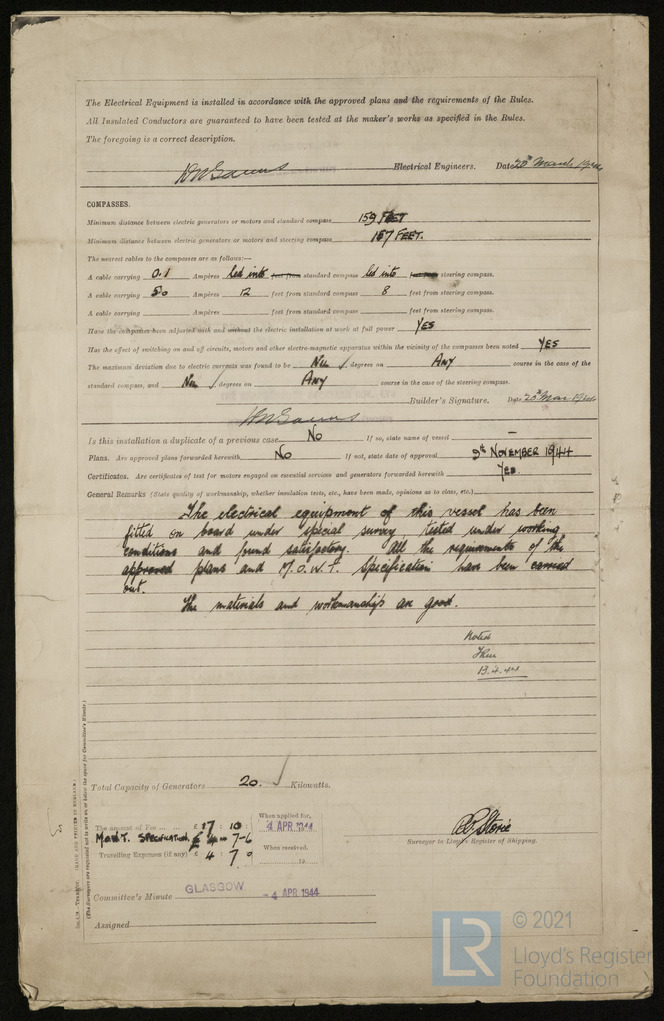 The Electrical Equipment is installed in accordance with the approved plans and the requirements of the Rules.
All Insulated Conductors are guaranteed to have been tested at the maker's works as specified in the Rules.
The foregoing is a correct description.
Electrical Engineers. Date 20th March 1944
COMPASSES.
Minimum distance between electric generators or motors and standard compass 159 FEET
Minimum distance between electric generators or motors and steering compass 157 FEET.
The nearest cables to the compasses are as follows:—
A cable carrying 0.1 Ampères led into feet from standard compass led into feet from steering compass.
A cable carrying 50 Ampères 12 feet from standard compass 8 feet from steering compass.
A cable carrying Ampères feet from standard compass feet from steering compass.
Have the compasses been adjusted with and without the electric installation at work at full power YES
Has the effect of switching on and off circuits, motors and other electro-magnetic apparatus within the vicinity of the compasses been noted YES
The maximum deviation due to electric currents was found to be Nil degrees on Any course in the case of the
standard compass, and Nil degrees on Any course in the case of the steering compass.
Builder's Signature. Date 20th Mar. 1944
Is this installation a duplicate of a previous case No If so, state name of vessel —
Plans. Are approved plans forwarded herewith No If not, state date of approval 9th NOVEMBER 1944
Certificates. Are certificates of test for motors engaged on essential services and generators forwarded herewith Yes.
General Remarks (State quality of workmanship, whether insulation tests, etc., have been made, opinions as to class, etc.)
The electrical equipment of this vessel has been
fitted on board under special survey tested under working
conditions and found satisfactory. All the requirements of the
approved plans and M.O.W.T. Specification have been carried
out.
The materials and workmanship are good.
Noted
13.4.44
Total Capacity of Generators 20. Kilowatts.
The amount of Fee ... ... £ 17 : 10 :
When applied for,
4 APR 1944
M.O.W.T. SPECIFICATION. £ 4 - 7-6
Travelling Expenses (if any) £ 4 : 7 : 0
When received,
19
R. Storie
Surveyor to Lloyd's Register of Shipping.
Committee's Minute GLASGOW - 4 APR 1944
Assigned
(The Surveyors are requested not to write on or below the space for Committee's Minute.)
(MADE AND PRINTED IN ENGLAND.)
LR
© 2021
Lloyd's Register
Foundation